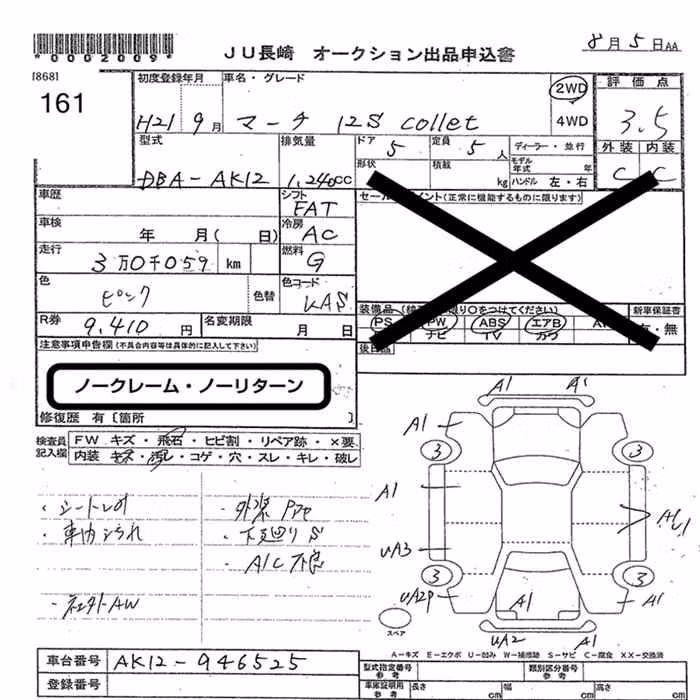 *0002009*
JU長崎 オークション出品申込書
8月5日AA
[868]
161
初度登録年月
車名・グレード
2WD
4WD
評価点
H21 9月
マーチ 12S collet
3.5
型式
排気量
ドア
5
定員
5人
ディーラー・並行
外装 内装
形状
積載
kg
モデル年式
年
ハンドル 左・右
C C
DBA-AK12
1,240cc
車歴
シフト
FAT
車検
年 月( 日)
冷房
AC
走行
3万0千059 km
燃料
G
色
ピンク
色替
色コード
R券
9,410円
名変期限
月 日
装備品
PS PW ABS エアB
ナビ TV カワ
新車保証書
有・無
後日品
注意事項申告欄(不具合内容等は具体的に記入して下さい)
ノークレーム・ノーリターン
修復歴 有〔箇所 〕
検査員記入欄
FW キズ・飛石・ヒビ割・リペア跡・×要
内装 キズ・汚レ・コゲ・穴・スレ・キレ・破レ
・下廻りS
・A/C不良
A1 A1
A1
3 3
A1
UA3
3 3
A1
A1
UA2 A1
スペア
A-キズ E-エクボ U-凹み W-補修跡 S-サビ C-腐食 XX-交換済
車台番号
AK12-946525
登録番号
型式指定番号
参考
類別区分番号
参考
車庫証明用
参考
長さ
cm
幅
cm
高さ
cm